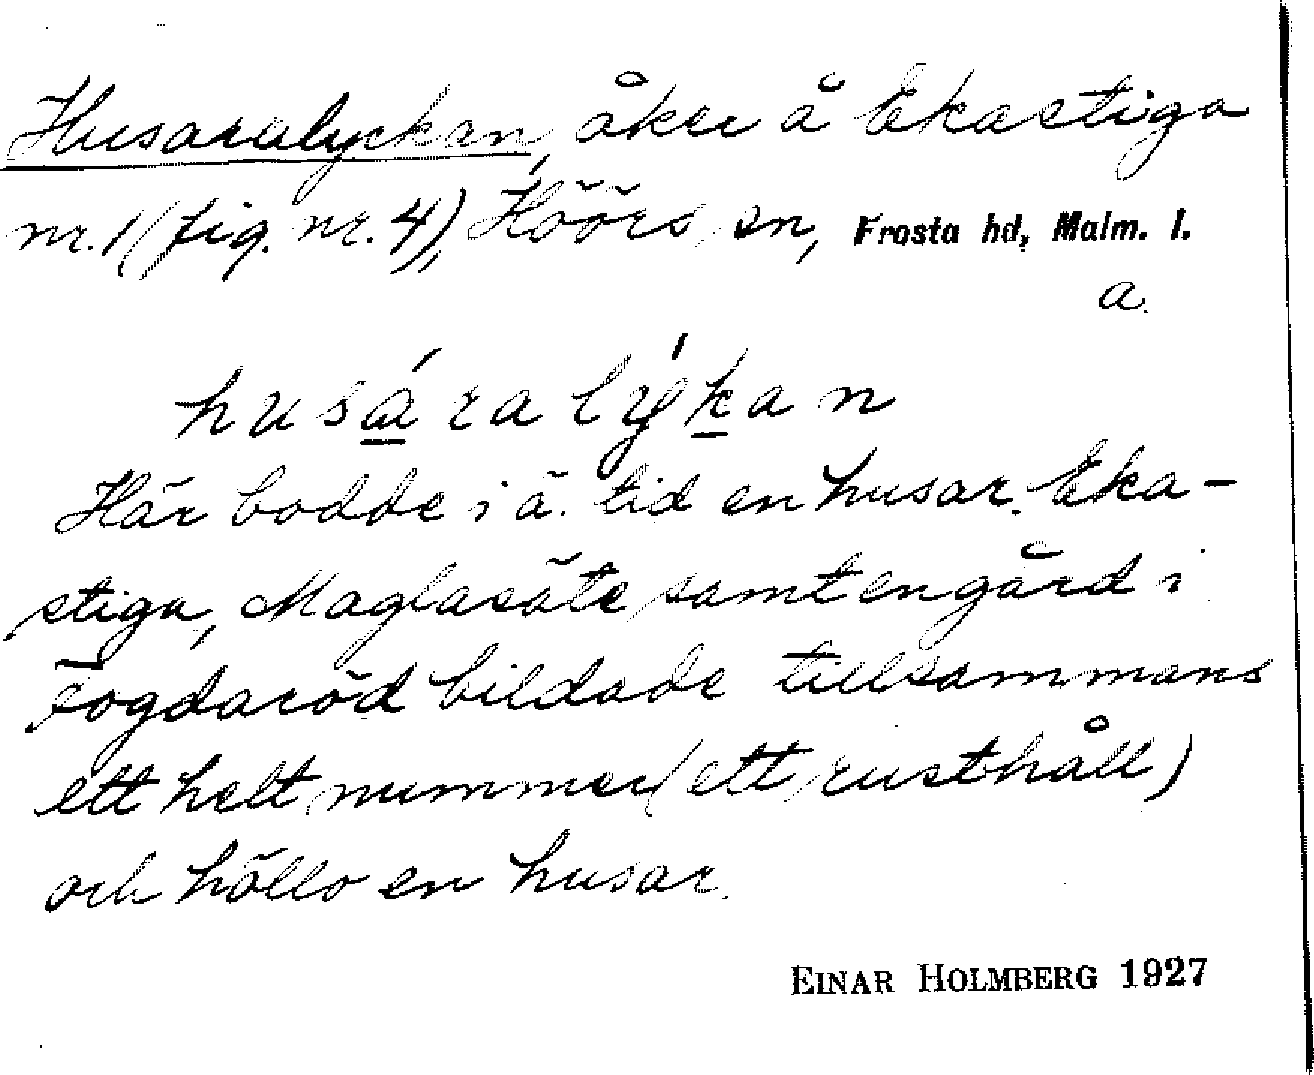 Husaralyckan, åker å Ekastiga
nr. 1 (fig. nr. 4), Höörs sn, Frosta hd, Malm. l.
a.
husáralýkan
Här bodde i ä. tid en husar. Eka-
stiga, Maglasäte samt en gård i
Fogdaröd bildade tillsammans
ett helt nummer (ett rusthåll)
och höllo en husar.
EINAR HOLMBERG 1927